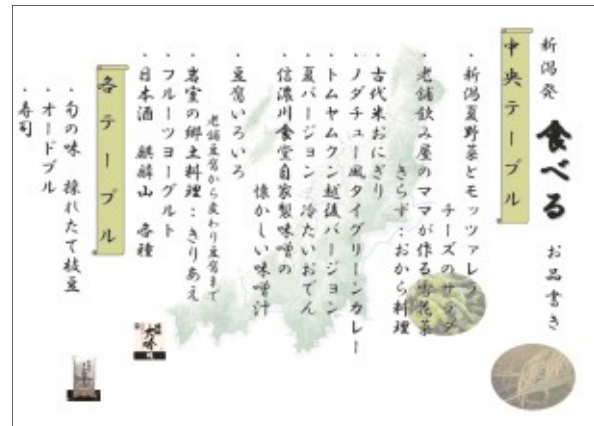 新潟発 食べる お品書き
中央テーブル
・新潟夏野菜とモッツァレラ
チーズのサラダ
・老舗飲み屋のママが作る雪花菜
きらず:おから料理
・古代米おにぎり
・ノダチュー風タイグリーンカレー
・トムヤムクン越後バージョン
・夏バージョン 冷たいおでん
・信濃川食堂自家製味噌の
懐かしい味噌汁
・豆腐いろいろ
老舗豆腐から変わり豆腐まで
・岩室の郷土料理:きりあえ
・フルーツヨーグルト
・日本酒 麒麟山 各種
各テーブル
・旬の味 採れたて枝豆
・オードブル
・寿司